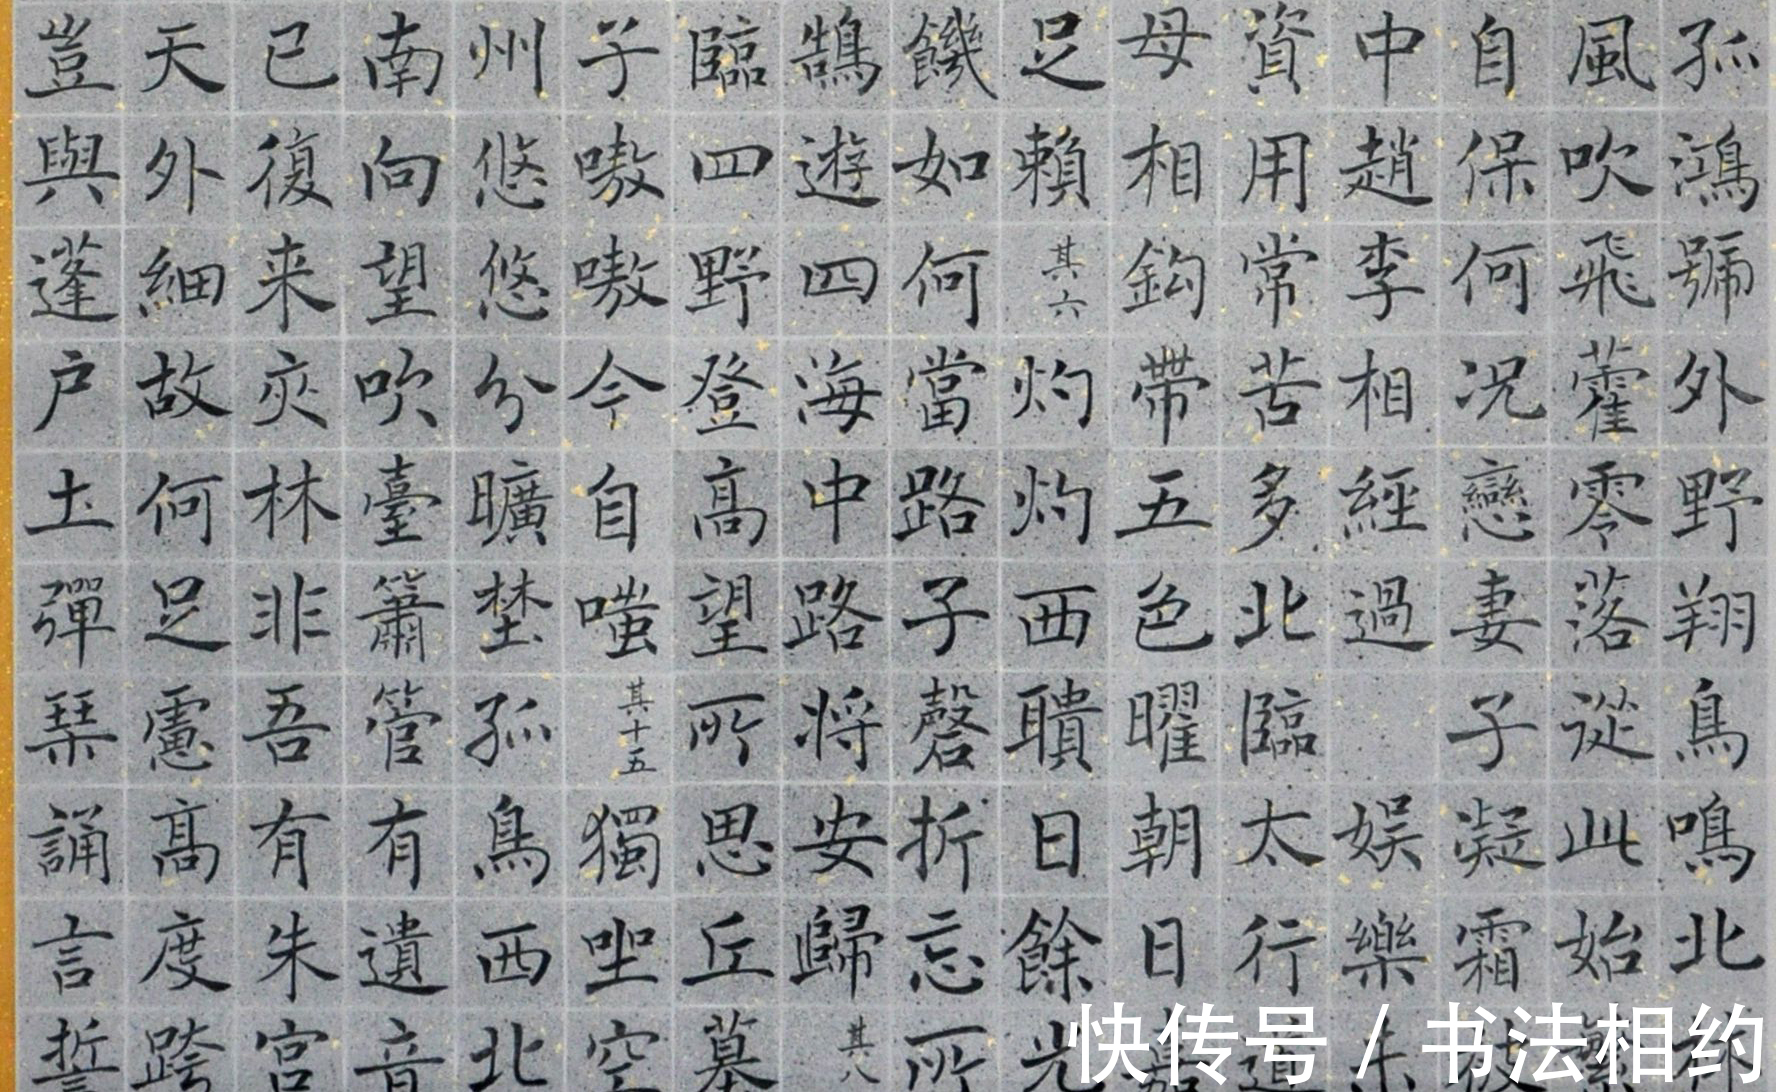 孤鴻號外野翔鳥鳴北
風吹飛藿零落從此始
自保何況戀妻子凝霜
中趙李相經過娛樂未
資用常苦多北臨太行道
母相鈎帶五色曜朝日
足賴其六灼灼西聵日餘光
饑如何當路子磬折忘所
鵠遊四海中路将安歸其八
臨四野登高望所思丘墓
子嗷嗷今自嗤其十五獨坐空
州悠悠分曠埜孤鳥西北
南向望吹臺簫管有遺音
已復来夾林非吾有朱宮
天外細故何足慮高度跨
豈與蓬户士彈琴誦言誓
快传号 / 书法相约